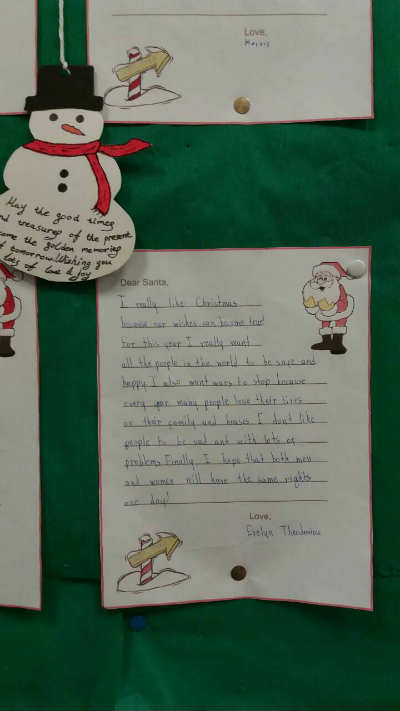 Love,
May the good times
nd treasures of the present
come the golden memories
f tomorrow. Wishing you
lots of love & joy
Dear Santa,
I really like Christmas
because our wishes can become true!
For this year I really want
all the people in the world to be safe and
happy. I also want wars to stop because
every year many people lose their lives
or their family and houses. I don't like
people to be sad and with lots of
problems. Finally, I hope that both men
and women will have the same rights
one day!
Love,
Evelyn